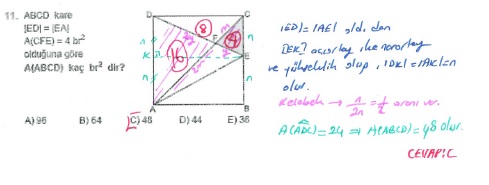 11. ABCD kare
|ED| = |EA|
A(CFE) = 4 br²
olduğuna göre
A(ABCD) kaç br² dir?
D
C
8
F
4
n
n
K
E
16
n
n
A
B
A) 96 B) 64 C) 48 D) 44 E) 36
|ED|=|AE| old. dan
ve yükseklik olup, |DK|=|AK|=n
olur.
Kelebek → n/2n = 1/2 oranı var.
A(ADC)=24 ⇒ A(ABCD)=48 olur.
CEVAP: C